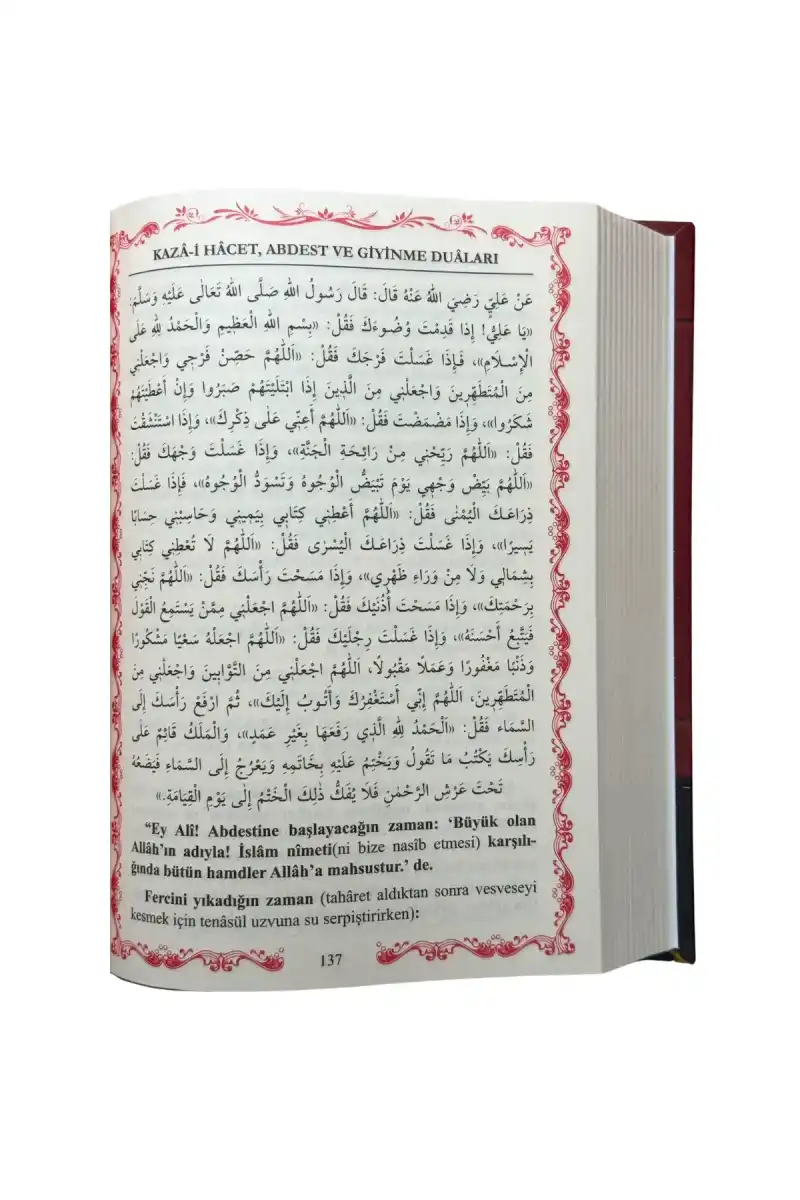 KAZÂ-İ HÂCET, ABDEST VE GİYİNME DUÂLARI
عَنْ عَلِيٍّ رَضِيَ اللهُ عَنْهُ قَالَ: قَالَ رَسُولُ اللهِ صَلَّى اللهُ تَعَالٰى عَلَيْهِ وَسَلَّمَ:
«يَا عَلِيُّ! إِذَا قَدِمْتَ وُضُوءَكَ فَقُلْ: «بِسْمِ اللهِ الْعَظِيمِ وَالْحَمْدُ لِلهِ عَلَى
الْإِسْلَامِ»، فَإِذَا غَسَلْتَ فَرْجَكَ فَقُلْ: «اَللّٰهُمَّ حَصِّنْ فَرْجِي وَاجْعَلْنِي
مِنَ الْمُتَطَهِّرِينَ وَاجْعَلْنِي مِنَ الَّذِينَ إِذَا ابْتَلَيْتَهُمْ صَبَرُوا وَإِنْ أَعْطَيْتَهُمْ
شَكَرُوا»، وَإِذَا مَضْمَضْتَ فَقُلْ: «اَللّٰهُمَّ أَعِنِّي عَلٰى ذِكْرِكَ»، وَإِذَا اسْتَنْشَقْتَ
فَقُلْ: «اَللّٰهُمَّ رَيِّحْنِي مِنْ رَائِحَةِ الْجَنَّةِ»، وَإِذَا غَسَلْتَ وَجْهَكَ فَقُلْ:
«اَللّٰهُمَّ بَيِّضْ وَجْهِي يَوْمَ تَبْيَضُّ الْوُجُوهُ وَتَسْوَدُّ الْوُجُوهُ»، فَإِذَا غَسَلْتَ
ذِرَاعَكَ الْيُمْنٰى فَقُلْ: «اَللّٰهُمَّ أَعْطِنِي كِتَابِي بِيَمِينِي وَحَاسِبْنِي حِسَابًا
يَسِيرًا»، وَإِذَا غَسَلْتَ ذِرَاعَكَ الْيُسْرٰى فَقُلْ: «اَللّٰهُمَّ لَا تُعْطِنِي كِتَابِي
بِشِمَالِي وَلَا مِنْ وَرَاءِ ظَهْرِي»، وَإِذَا مَسَحْتَ رَأْسَكَ فَقُلْ: «اَللّٰهُمَّ نَجِّنِي
بِرَحْمَتِكَ»، وَإِذَا مَسَحْتَ أُذُنَيْكَ فَقُلْ: «اَللّٰهُمَّ اجْعَلْنِي مِمَّنْ يَسْتَمِعُ الْقَوْلَ
فَيَتَّبِعُ أَحْسَنَهُ»، وَإِذَا غَسَلْتَ رِجْلَيْكَ فَقُلْ: «اَللّٰهُمَّ اجْعَلْهُ سَعْيًا مَشْكُورًا
وَذَنْبًا مَغْفُورًا وَعَمَلًا مَقْبُولًا، اَللّٰهُمَّ اجْعَلْنِي مِنَ التَّوَّابِينَ وَاجْعَلْنِي مِنَ
الْمُتَطَهِّرِينَ، اَللّٰهُمَّ إِنِّي أَسْتَغْفِرُكَ وَأَتُوبُ إِلَيْكَ»، ثُمَّ ارْفَعْ رَأْسَكَ إِلَى
السَّمَاءِ فَقُلْ: «اَلْحَمْدُ لِلهِ الَّذِي رَفَعَهَا بِغَيْرِ عَمَدٍ»، وَالْمَلَكُ قَائِمٌ عَلٰى
رَأْسِكَ يَكْتُبُ مَا تَقُولُ وَيَخْتِمُ عَلَيْهِ بِخَاتَمِهِ وَيَعْرُجُ إِلَى السَّمَاءِ فَيَضَعُهُ
تَحْتَ عَرْشِ الرَّحْمٰنِ فَلَا يُفَكُّ ذٰلِكَ الْخَتْمُ إِلٰى يَوْمِ الْقِيَامَةِ.»
“Ey Alî! Abdestine başlayacağın zaman: ‘Büyük olan
Allâh’ın adıyla! İslâm nîmeti(ni bize nasîb etmesi) karşılı-
ğında bütün hamdler Allâh’a mahsustur.’ de.
Fercini yıkadığın zaman (tahâret aldıktan sonra vesveseyi
kesmek için tenâsül uzvuna su serpiştirirken):
137